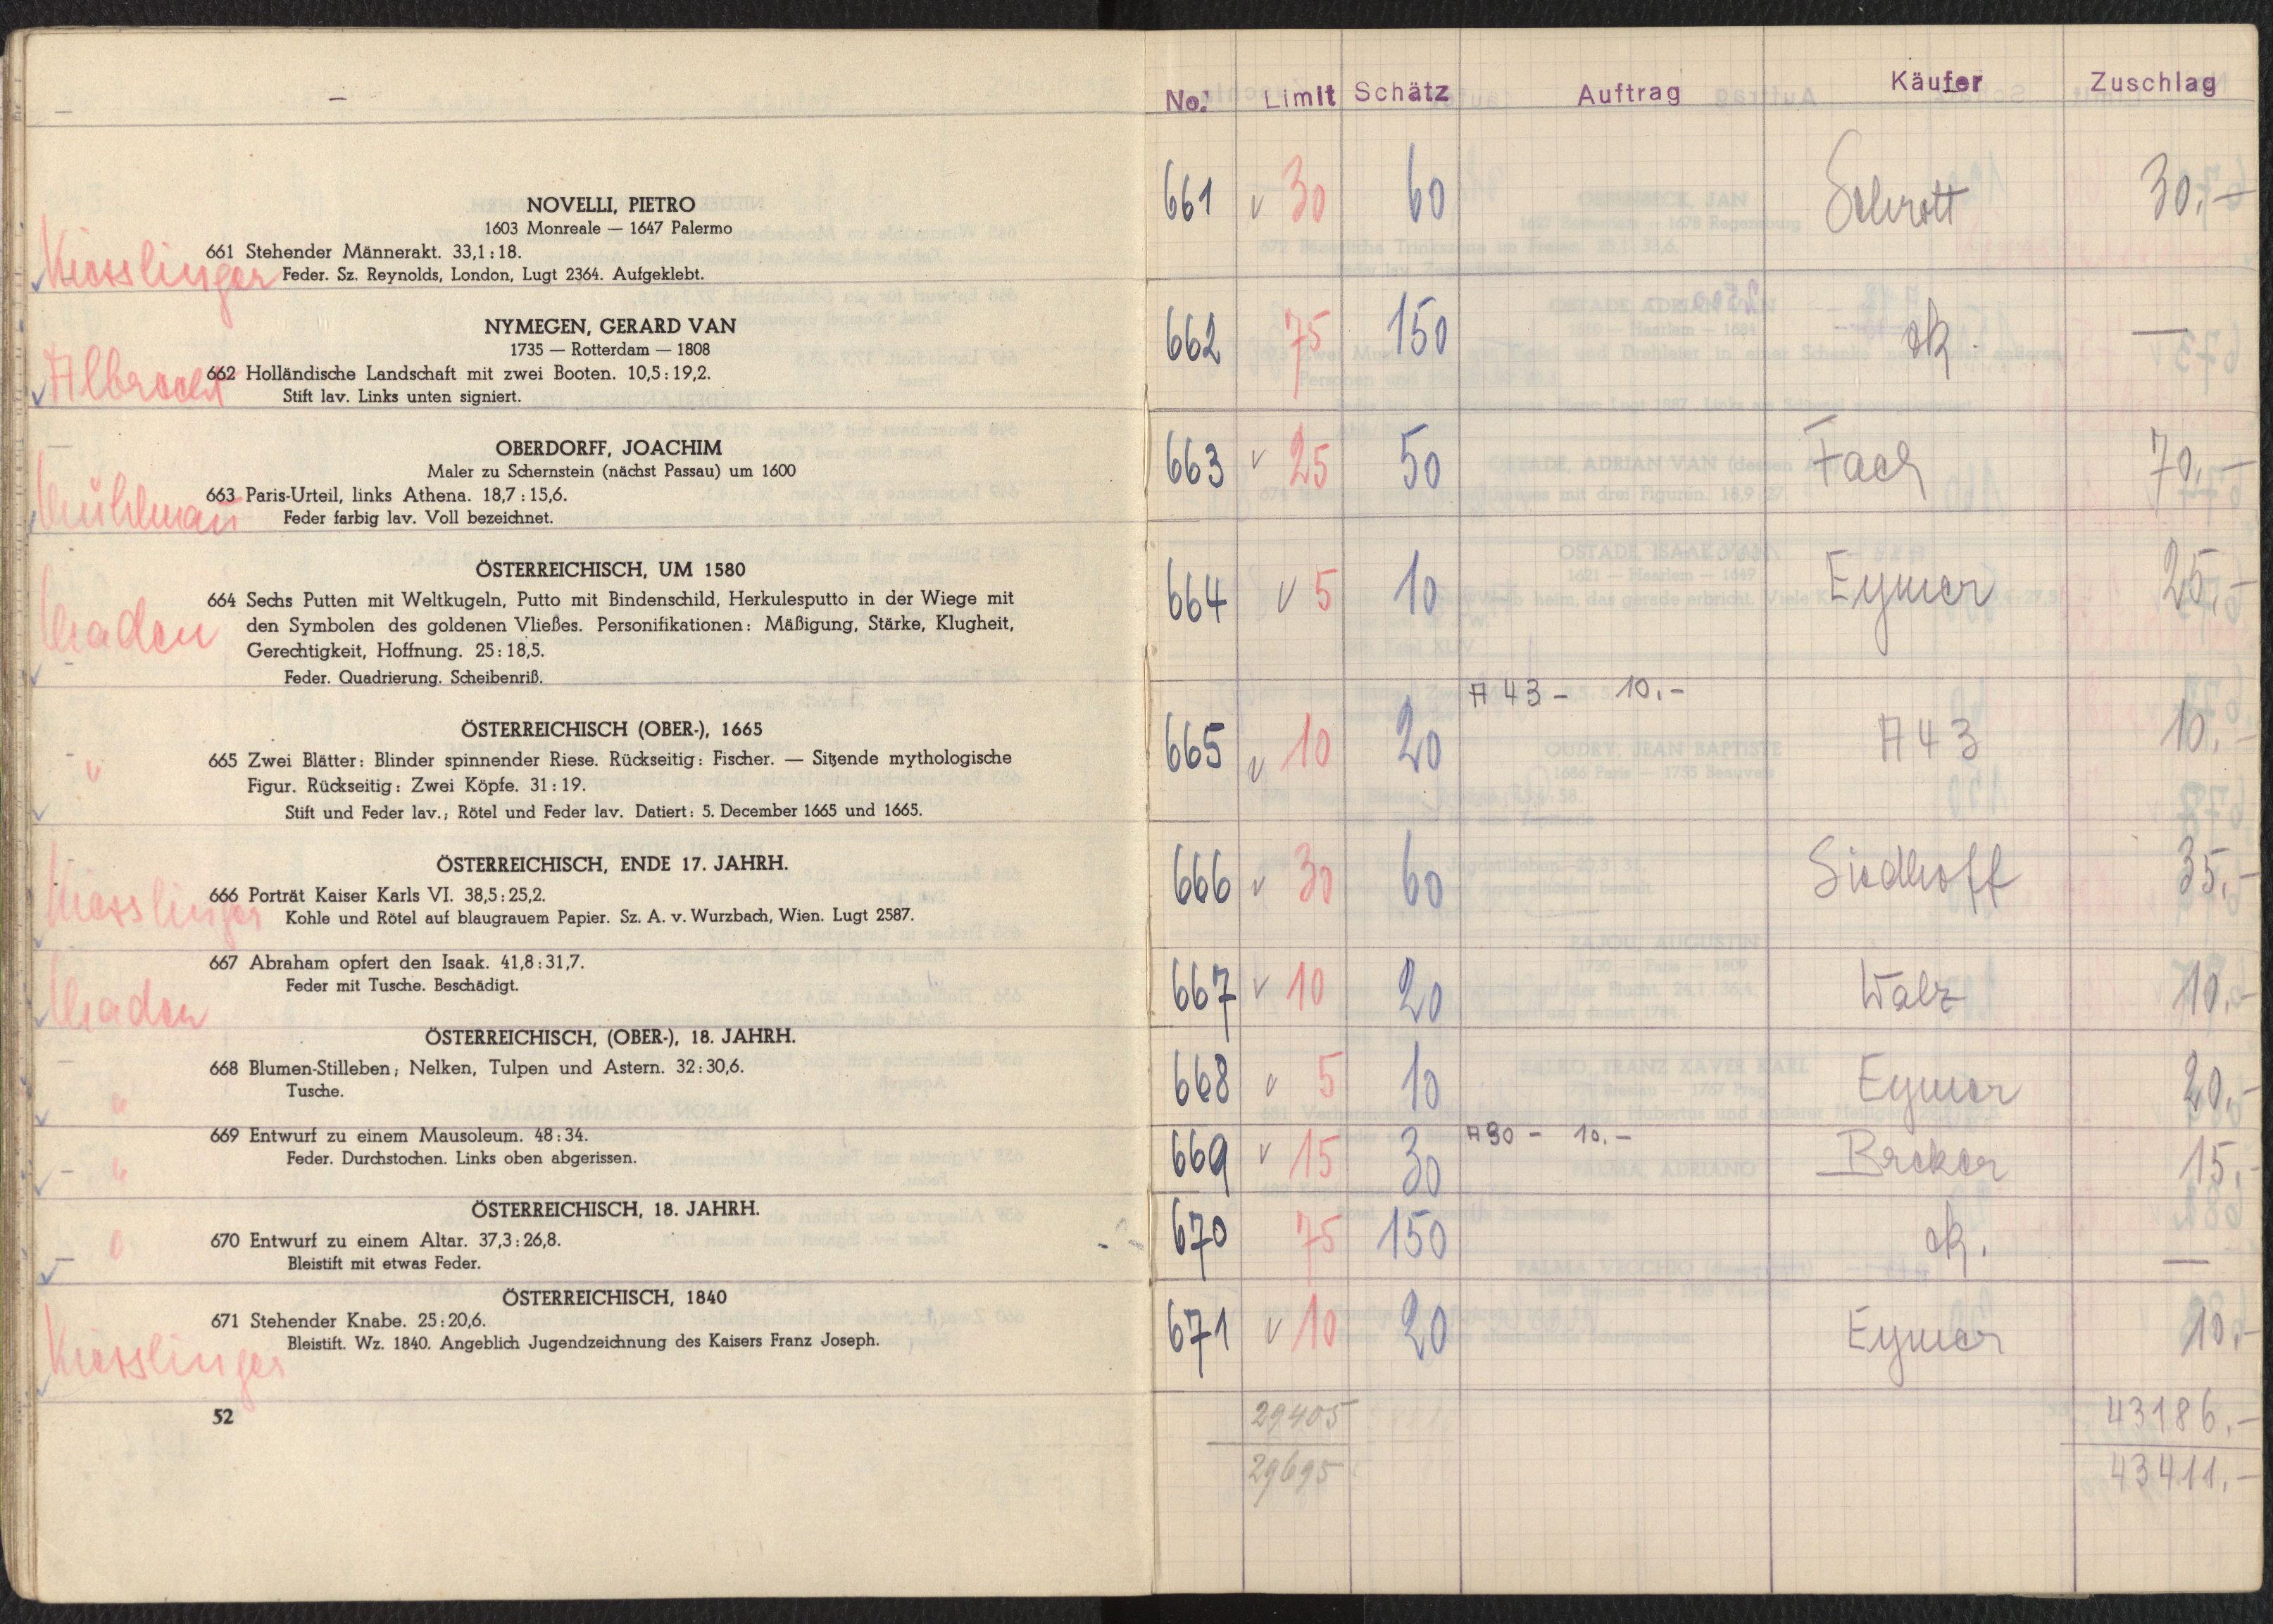 NOVELLI, PIETRO
1603 Monreale — 1647 Palermo
661 Stehender Männerakt. 33,1 : 18.
Kiesslinger
Feder. Sz. Reynolds, London, Lugt 2364. Aufgeklebt.
NYMEGEN, GERARD VAN
1735 — Rotterdam — 1808
Albrecht
662 Holländische Landschaft mit zwei Booten. 10,5 : 19,2.
Stift lav. Links unten signiert.
OBERDORFF, JOACHIM
Maler zu Schernstein (nächst Passau) um 1600
663 Paris-Urteil, links Athena. 18,7 : 15,6.
Feder farbig lav. Voll bezeichnet.
ÖSTERREICHISCH, UM 1580
664 Sechs Putten mit Weltkugeln, Putto mit Bindenschild, Herkulesputto in der Wiege mit
den Symbolen des goldenen Vließes. Personifikationen: Mäßigung, Stärke, Klugheit,
Gerechtigkeit, Hoffnung. 25 : 18,5.
Feder. Quadrierung. Scheibenriß.
ÖSTERREICHISCH (OBER-), 1665
665 Zwei Blätter: Blinder spinnender Riese. Rückseitig: Fischer. — Sitzende mythologische
Figur. Rückseitig: Zwei Köpfe. 31 : 19.
Stift und Feder lav.; Rötel und Feder lav. Datiert: 5. December 1665 und 1665.
ÖSTERREICHISCH, ENDE 17. JAHRH.
666 Porträt Kaiser Karls VI. 38,5 : 25,2.
Kiesslinger
Kohle und Rötel auf blaugrauem Papier. Sz. A. v. Wurzbach, Wien. Lugt 2587.
667 Abraham opfert den Isaak. 41,8 : 31,7.
Feder mit Tusche. Beschädigt.
ÖSTERREICHISCH, (OBER-), 18. JAHRH.
668 Blumen-Stilleben; Nelken, Tulpen und Astern. 32 : 30,6.
Tusche.
669 Entwurf zu einem Mausoleum. 48 : 34.
Feder. Durchstochen. Links oben abgerissen.
ÖSTERREICHISCH, 18. JAHRH.
670 Entwurf zu einem Altar. 37,3 : 26,8.
Bleistift mit etwas Feder.
ÖSTERREICHISCH, 1840
671 Stehender Knabe. 25 : 20,6.
Bleistift. Wz. 1840. Angeblich Jugendzeichnung des Kaisers Franz Joseph.
Kiesslinger
52
No. Limit Schätz Auftrag Käufer Zuschlag
661 v 30 60 Schrott 30.-
662 75 150 ak. —
663 v 25 50 Fach 70.-
664 v 5 10 Eymer 25.-
A 43 - 10.-
665 v 10 20 A 43 10.-
666 v 30 60 Siedhoff 35.-
667 v 10 20 Walz 10.-
668 v 5 10 Eymer 20.-
A 90 - 10.-
669 v 15 30 Breker 15.-
670 75 150 ak. —
671 v 10 20 Eymer 10.-
29405 43186.-
29695 43411.-